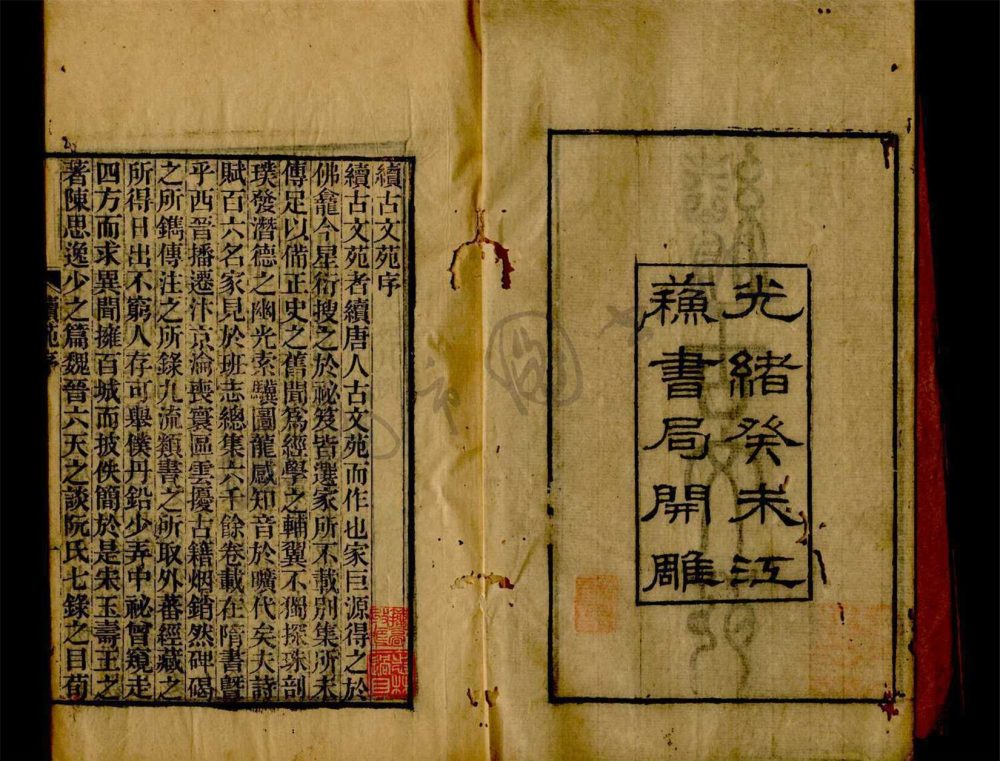 光緒癸未江
蘇書局開雕
續古文苑序
續古文苑者續唐人古文苑而作也家巨源得之於
佛龕今星衍搜之於祕笈皆選家所不載別集所未
傳足以備正史之舊聞爲經學之輔翼不獨探珠剖
璞發潛德之幽光索驥圖龍感知音於曠代矣夫詩
賦百六名家見於班志總集六千餘卷載在隋書曁
乎西晉播遷汴京淪喪寰區雲擾古籍烟銷然碑碣
之所鐫傳注之所錄九流類書之所取外蕃經藏之
所得日出不窮人存可舉僕丹鉛少弄中祕曾窺走
四方而求異聞擁百城而披佚簡於是宋玉壽王之
著陳思逸少之篇魏晉六天之談阮氏七錄之目荀
續苑序